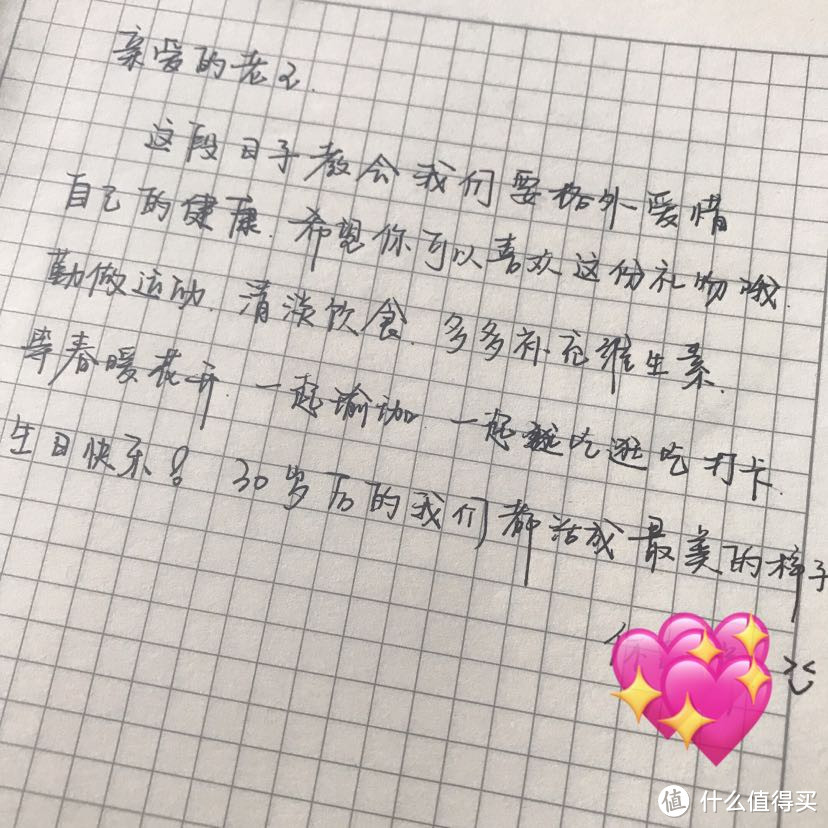 亲爱的老王.
这段日子教会我们要格外爱惜
自己的健康.希望你可以喜欢这份礼物哦.
勤做运动.清淡饮食.多多补充维生素.
等春暖花开.一起瑜伽.一起逛吃逛吃打卡.
生日快乐!30岁后的我们都活成最美的样子
值 什么值得买